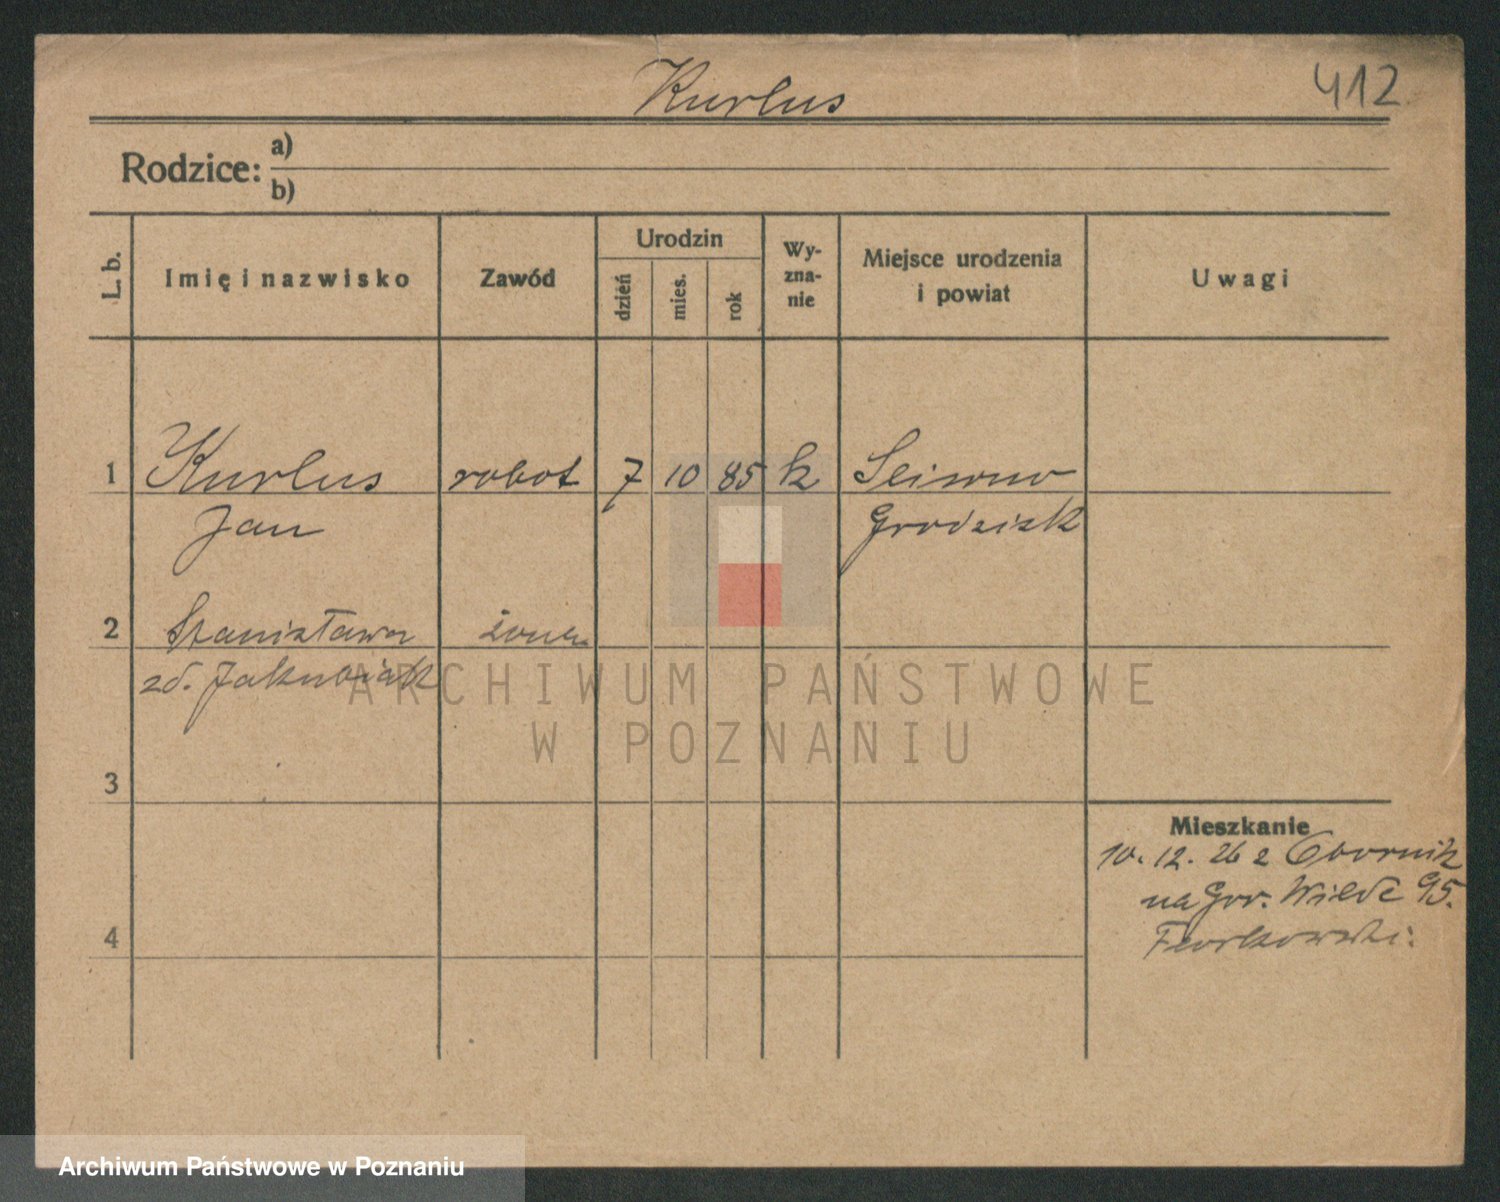 Kurlus
412
Rodzice: a)
b)
L. b.
Imię i nazwisko
Zawód
Urodzin
dzień
mies.
rok
Wy-
zna-
nie
Miejsce urodzenia
i powiat
Uwagi
1 Kurlus robot 7 10 85 k
Jan Grodzisk
2 Stanisława żona
zd. Jakubiak
3
4
Mieszkanie
10. 12. 26 z Obornik
na Gór. Wilde 95.
ARCHIWUM PAŃSTWOWE
W POZNANIU
Archiwum Państwowe w Poznaniu